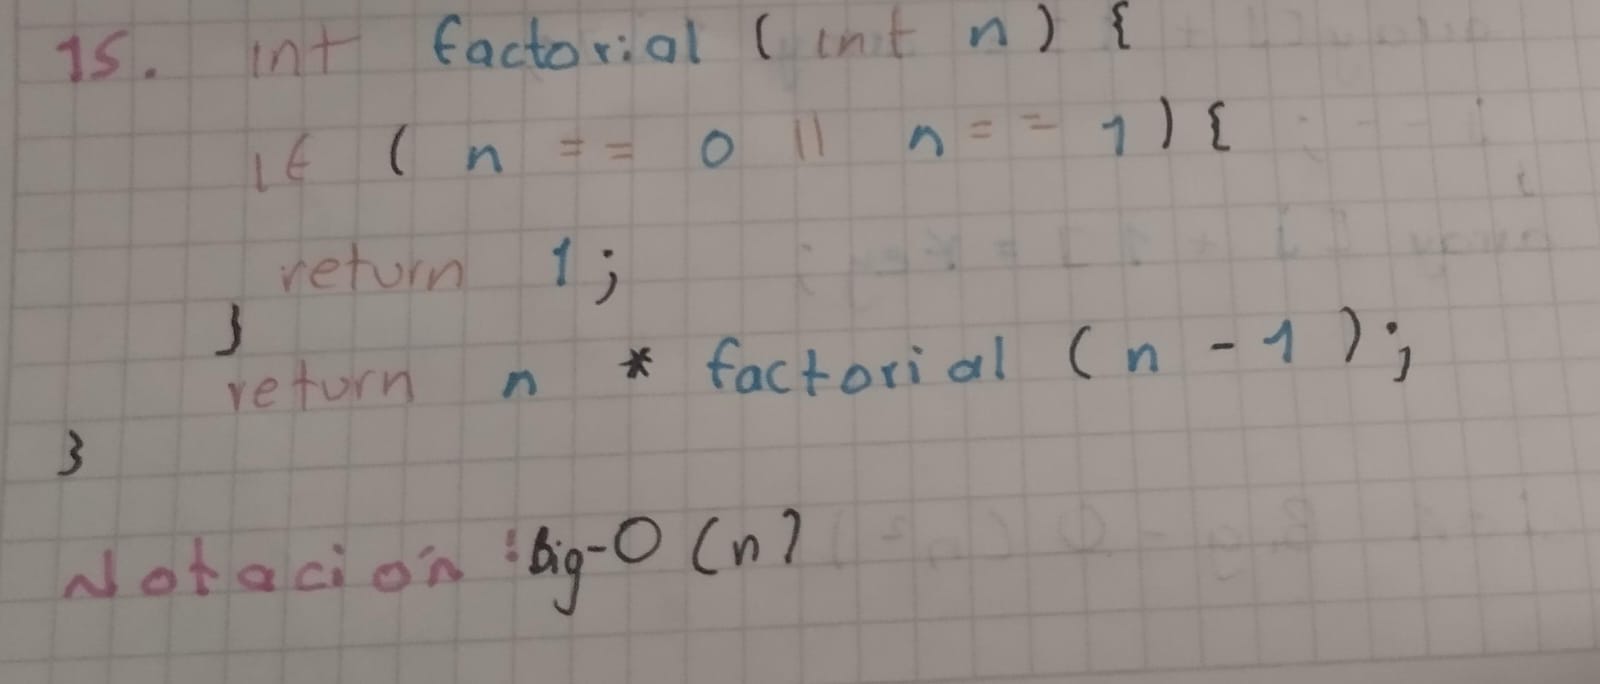 15. int factorial ( int n ) {
if ( n == 0 || n == 1 ) {
return 1 ;
}
return n * factorial ( n - 1 ) ;
}
Notación : Big-O (n)